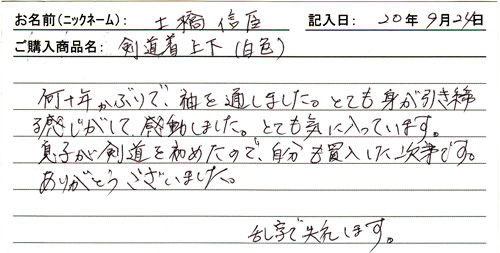 お名前(ニックネーム): 土橋 信臣 記入日: 20年 9月24日
ご購入商品名: 剣道着上下(白色)
何十年かぶりで、袖を通しました。とても身が引き締
る感じがして、感動しました。とても気に入っています。
息子が剣道を初めたので、自分も買入した次第です。
ありがとうございました。
乱字で失礼します。